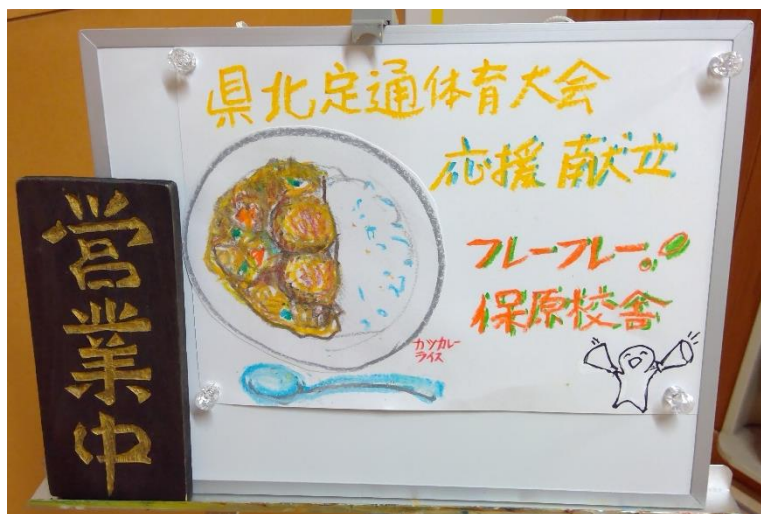 県北定通体育大会
応援献立
フレーフレー!
保原校舎
カツカレー
ライス
営業中